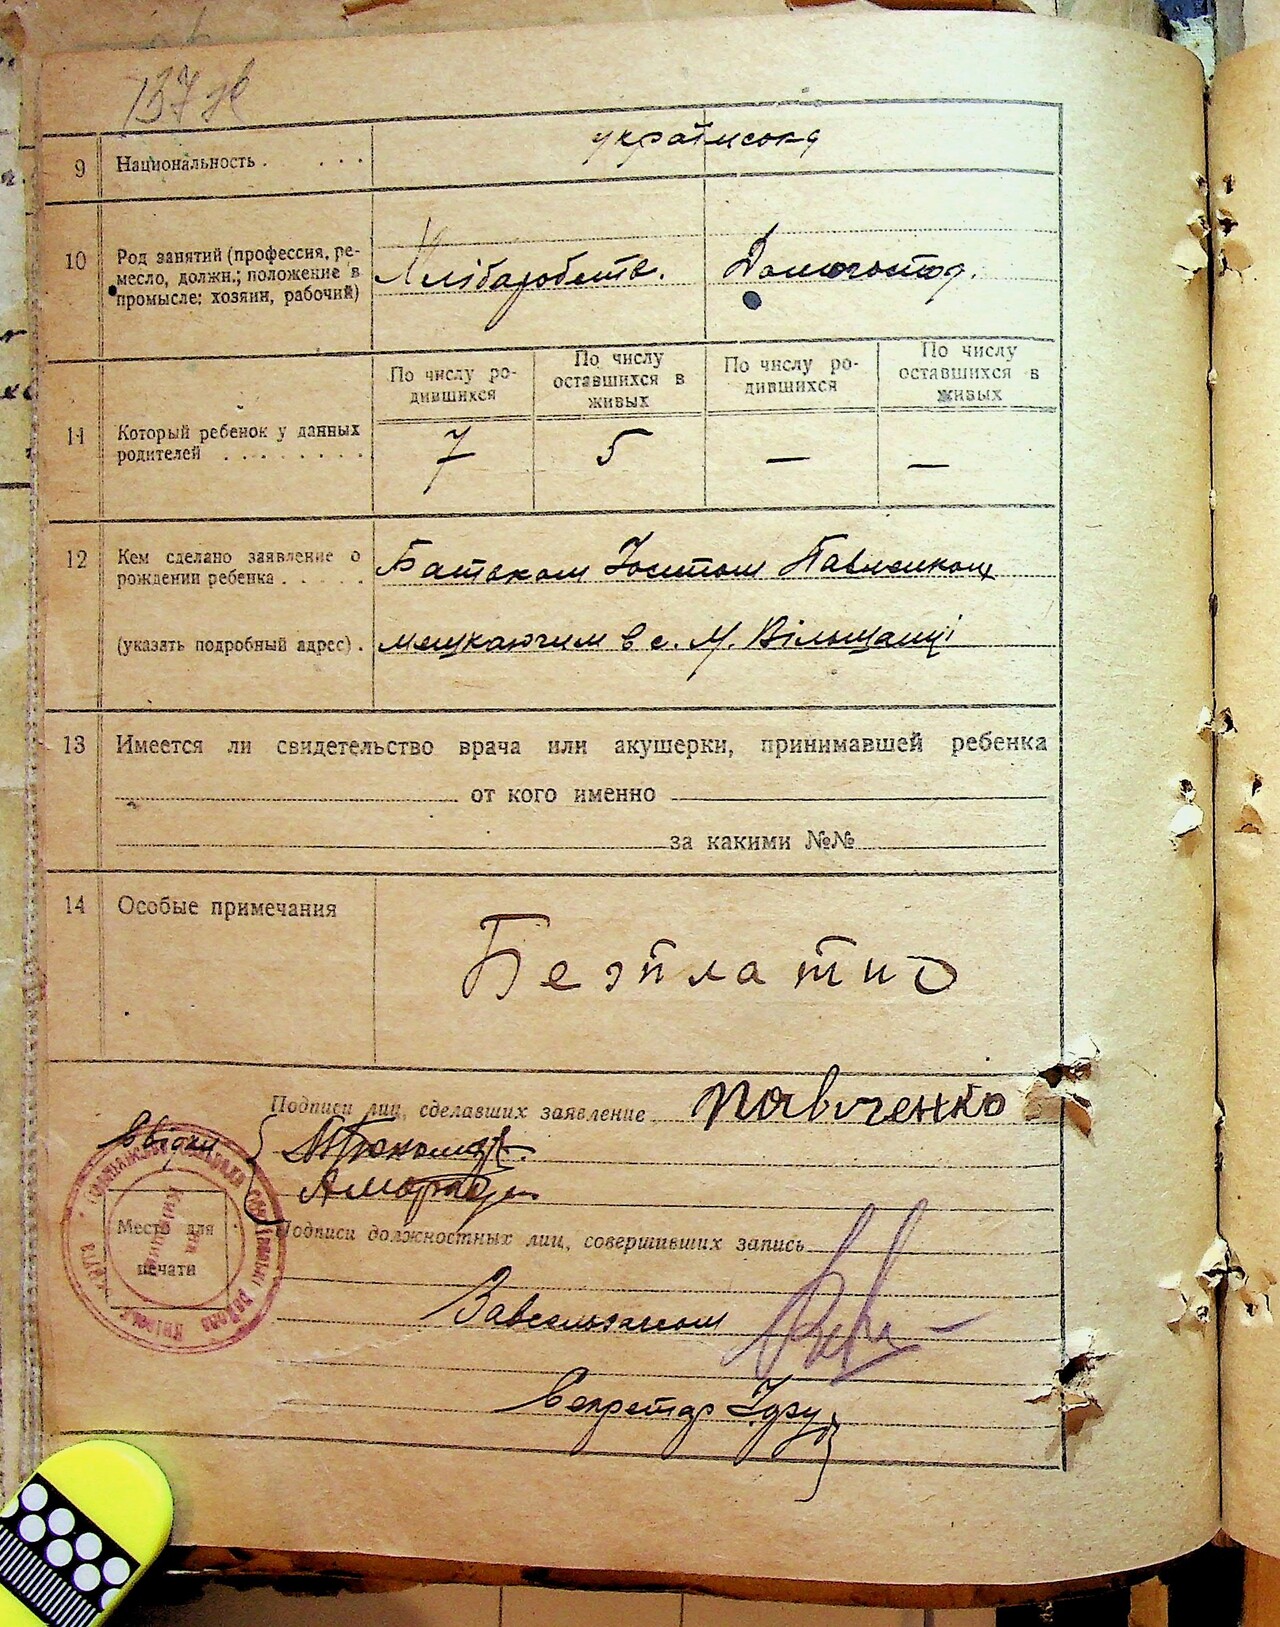 137 зв
9 Национальность . . . . українська
10 Род занятий (профессия, ре-
месло, должн.; положение в
промысле: хозяин, рабочий)
Хлібаробств. Домогоспод.
По числу ро-
дившихся
По числу
оставшихся в
живых
По числу ро-
дившихся
По числу
оставшихся в
живых
11 Который ребенок у данных
родителей . . . . . . . .
7 5 — —
12 Кем сделано заявление о
рождении ребенка . . . . .
Батьком
(указать подробный адрес) . мешкаючим в с. М. Вільшанці
13 Имеется ли свидетельство врача или акушерки, принимавшей ребенка
от кого именно
за какими №№
14 Особые примечания
Безплатно
Подписи лиц, сделавших заявление Павиченко
Свідки
Место для
печати
Подписи должностных лиц, совершивших запись
Секретар